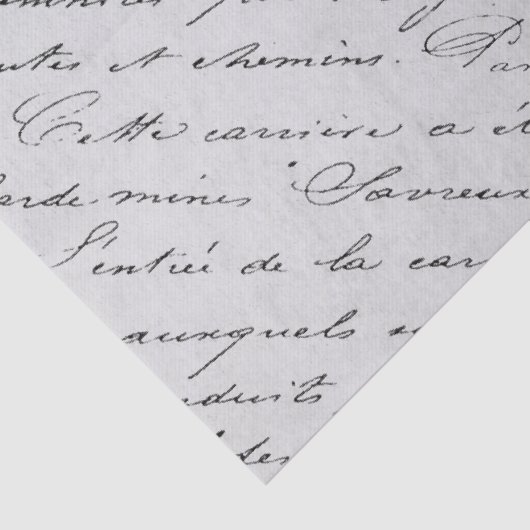 utes et chemins. Par
Cette carrière a é
arde-mines "Savreux
L'entrée de la car
auxquels
nduits,